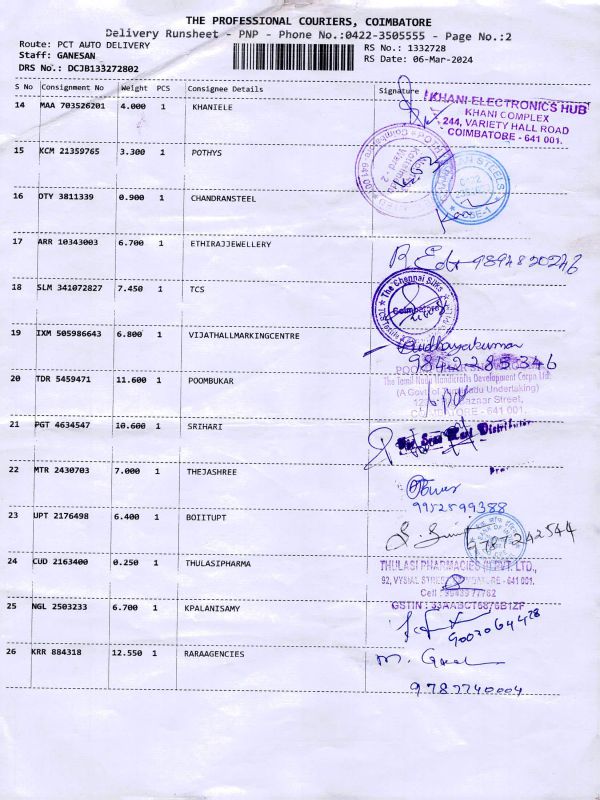 THE PROFESSIONAL COURIERS, COIMBATORE
Delivery Runsheet - PNP - Phone No.:0422-3505555 - Page No.:2
Route: PCT AUTO DELIVERY
Staff: GANESAN
DRS No.: DCJB133272802
RS No.: 1332728
RS Date: 06-Mar-2024
S No Consignment No Weight PCS Consignee Details Signature
14 MAA 703526201 4.000 1 KHANIELE
KHANI ELECTRONICS HUB
KHANI COMPLEX
244, VARIETY HALL ROAD
COIMBATORE - 641 001.
15 KCM 21359765 3.300 1 POTHYS
16 OTY 3811339 0.900 1 CHANDRANSTEEL
17 ARR 10343003 6.700 1 ETHIRAJJEWELLERY
18 SLM 341072827 7.450 1 TCS
The Chennai Silks
Coimbatore
19 IXM 505986643 6.800 1 VIJATHALLMARKINGCENTRE
Sudhayakumar
9842283346
20 TDR 5459471 11.600 1 POOMBUKAR
The Tamil Nadu Handicrafts Development Corpn Ltd.
COIMBATORE - 641 001.
21 PGT 4634547 10.600 1 SRIHARI
22 MTR 2430703 7.000 1 THEJASHREE
9952599388
23 UPT 2176498 6.400 1 BOIITUPT
9787242544
24 CUD 2163400 0.250 1 THULASIPHARMA
THULASI PHARMACIES (I) PVT. LTD.,
92, VYSIAL STREET, COIMBATORE - 641 001.
25 NGL 2503233 6.700 1 KPALANISAMY
26 KRR 884318 12.550 1 RARAAGENCIES
9782740004